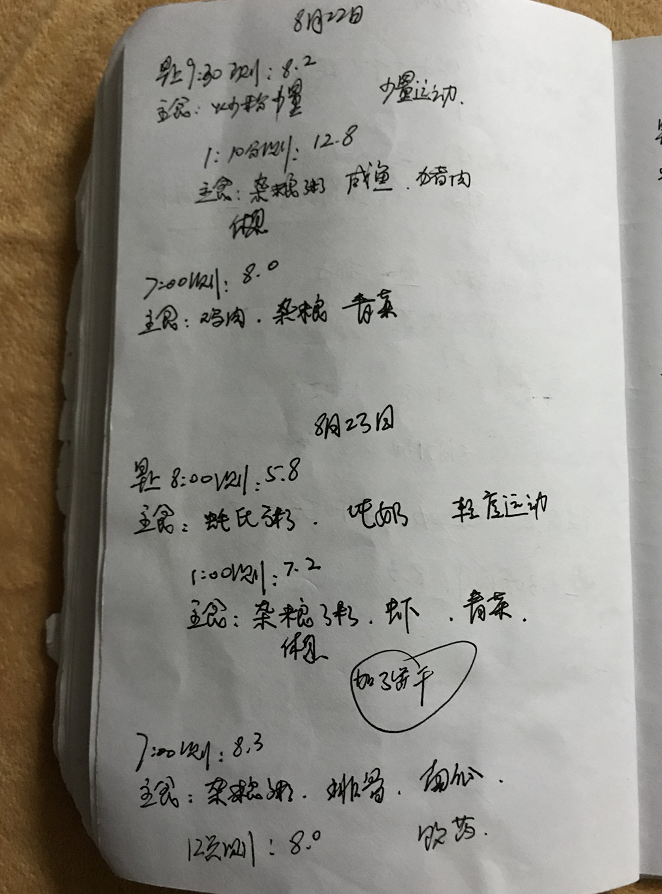 8月22日
早上9:30测:8.2
主食:炒粉少量 少量运动.
1:10分测:12.8
主食:杂粮粥 咸鱼.猪肉
休息
7:00测:8.0
主食:鸡肉.杂粮 青菜
8月23日
早上8:00测:5.8
主食:粥.炖奶 轻度运动
1:00测:7.2
主食:杂粮粥.虾.青菜.
休息
加了饼干
7:00测:8.3
主食:杂粮粥.排骨.南瓜.
12点测:8.0 吃药.